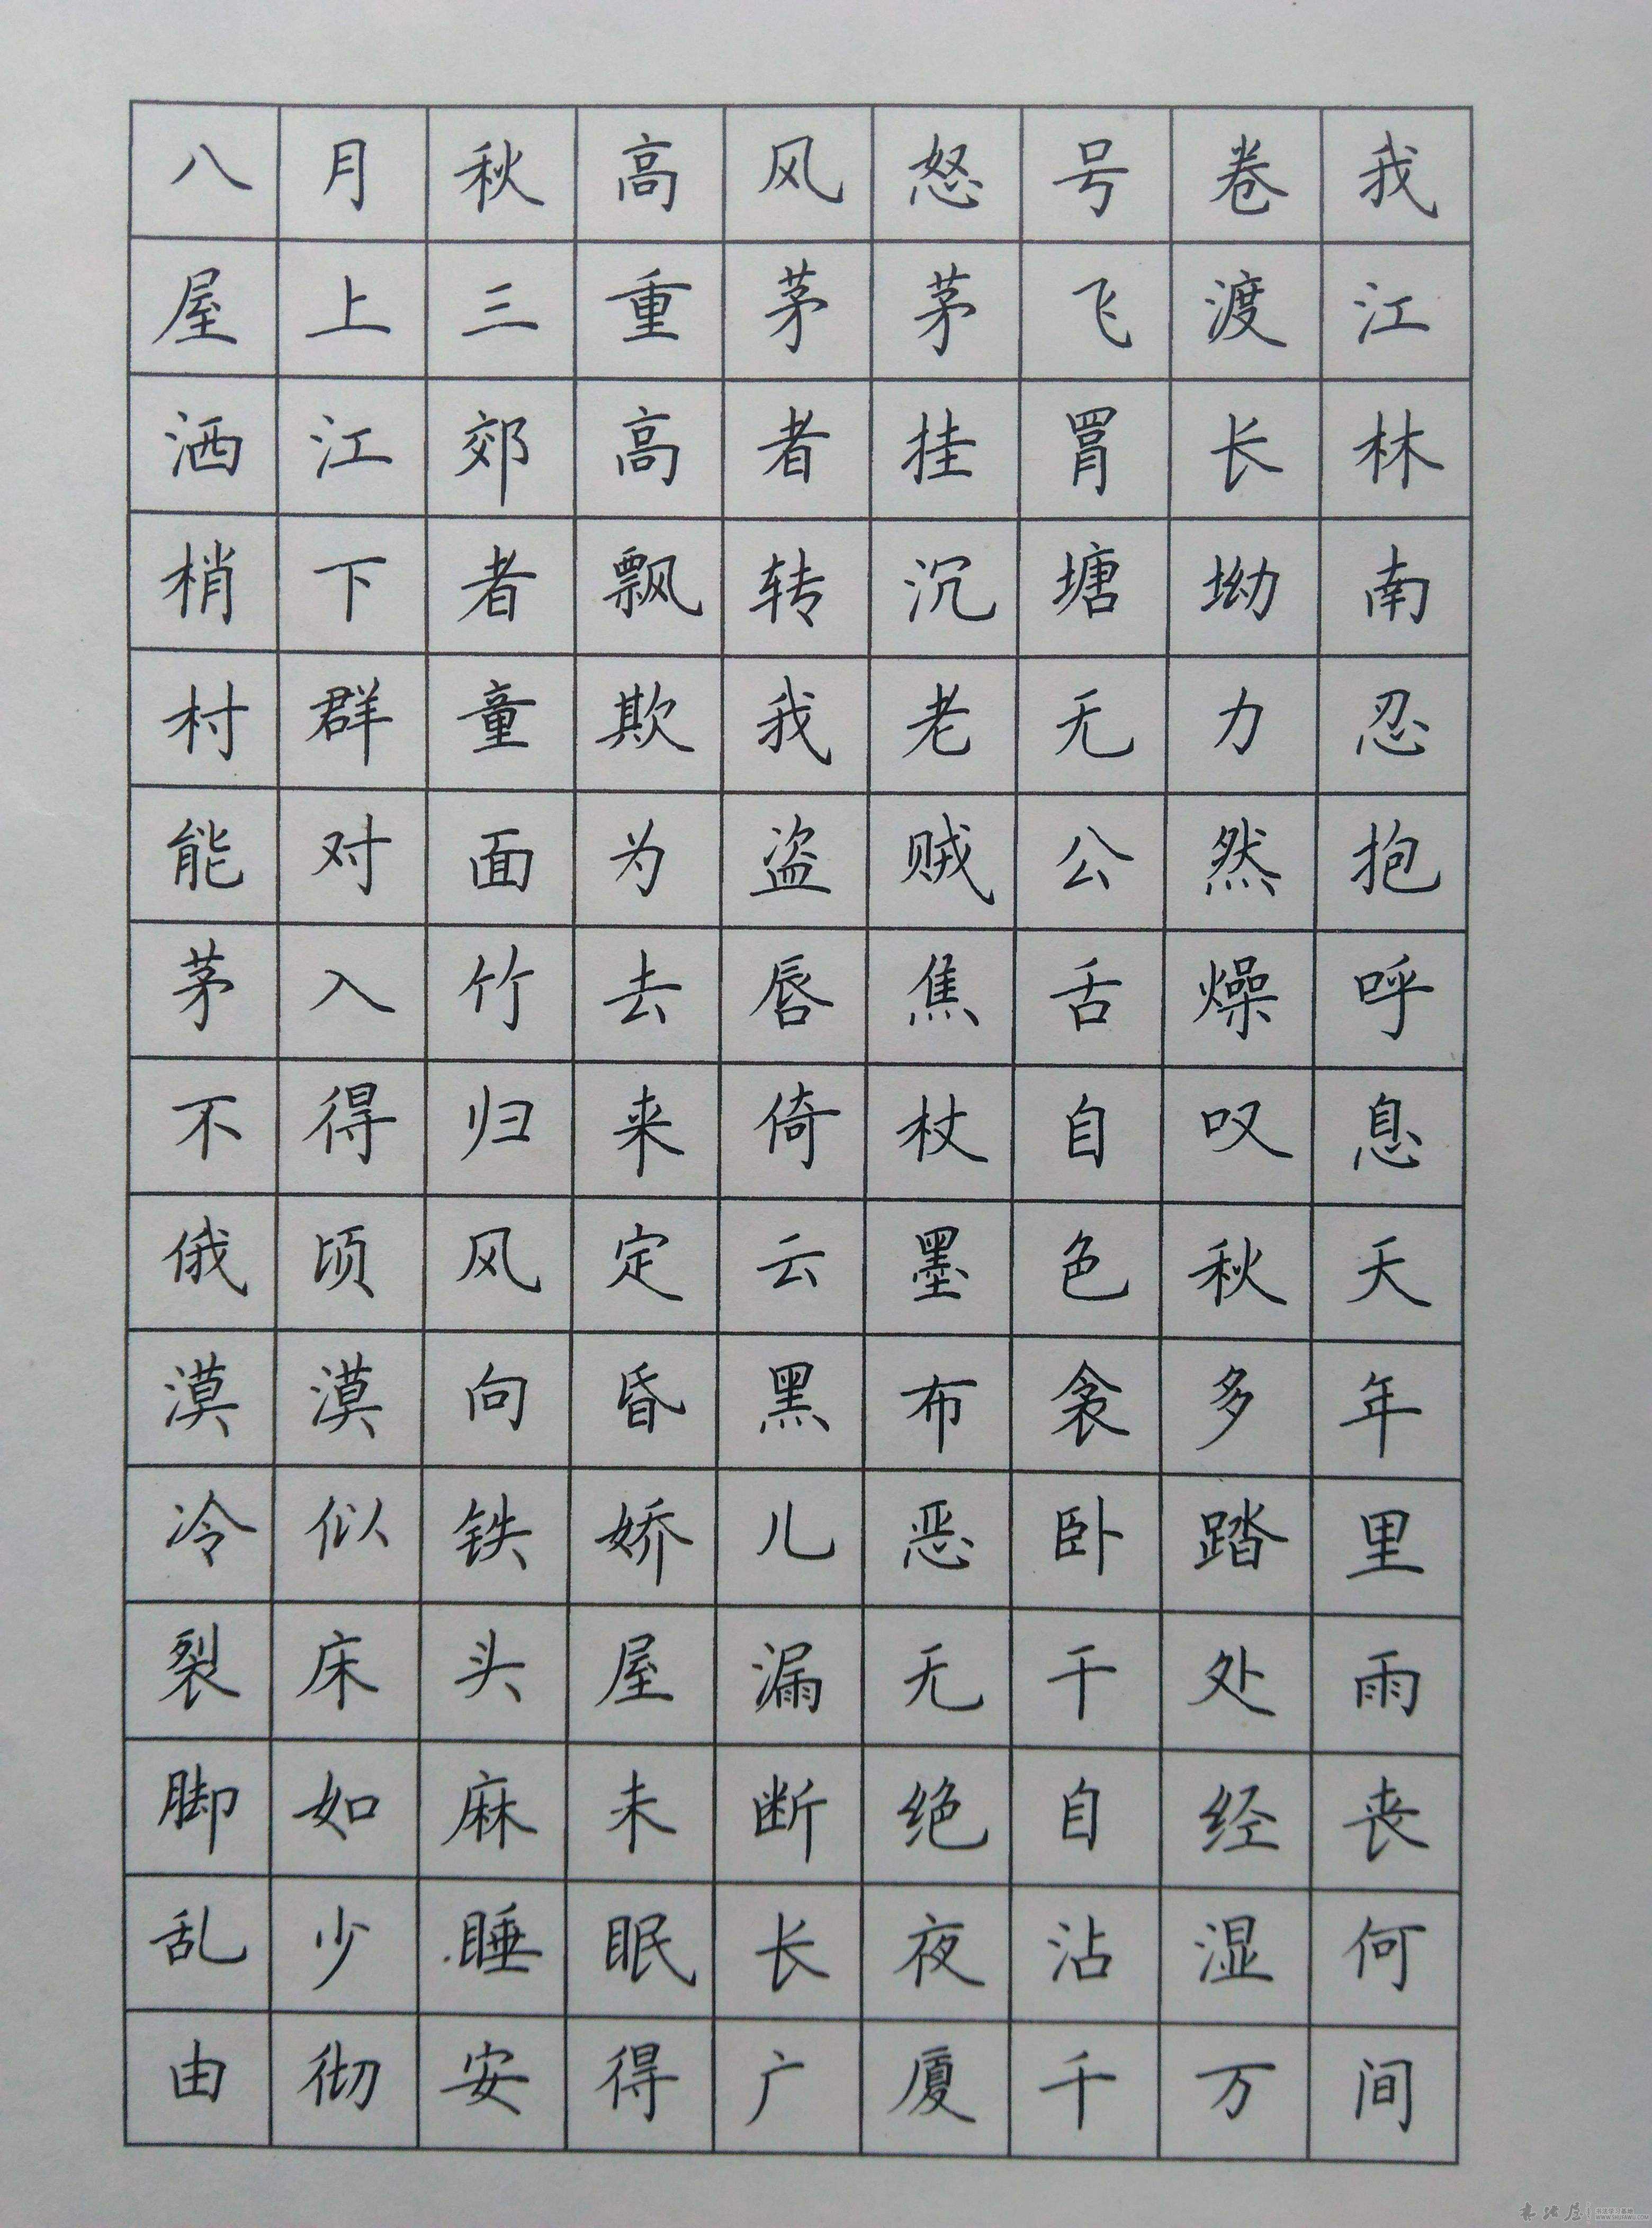 八月秋高风怒号卷我
屋上三重茅茅飞渡江
洒江郊高者挂罥长林
梢下者飘转沉塘坳南
村群童欺我老无力忍
能对面为盗贼公然抱
茅入竹去唇焦舌燥呼
不得归来倚杖自叹息
俄顷风定云墨色秋天
漠漠向昏黑布衾多年
冷似铁娇儿恶卧踏里
裂床头屋漏无干处雨
脚如麻未断绝自经丧
乱少睡眠长夜沾湿何
由彻安得广厦千万间